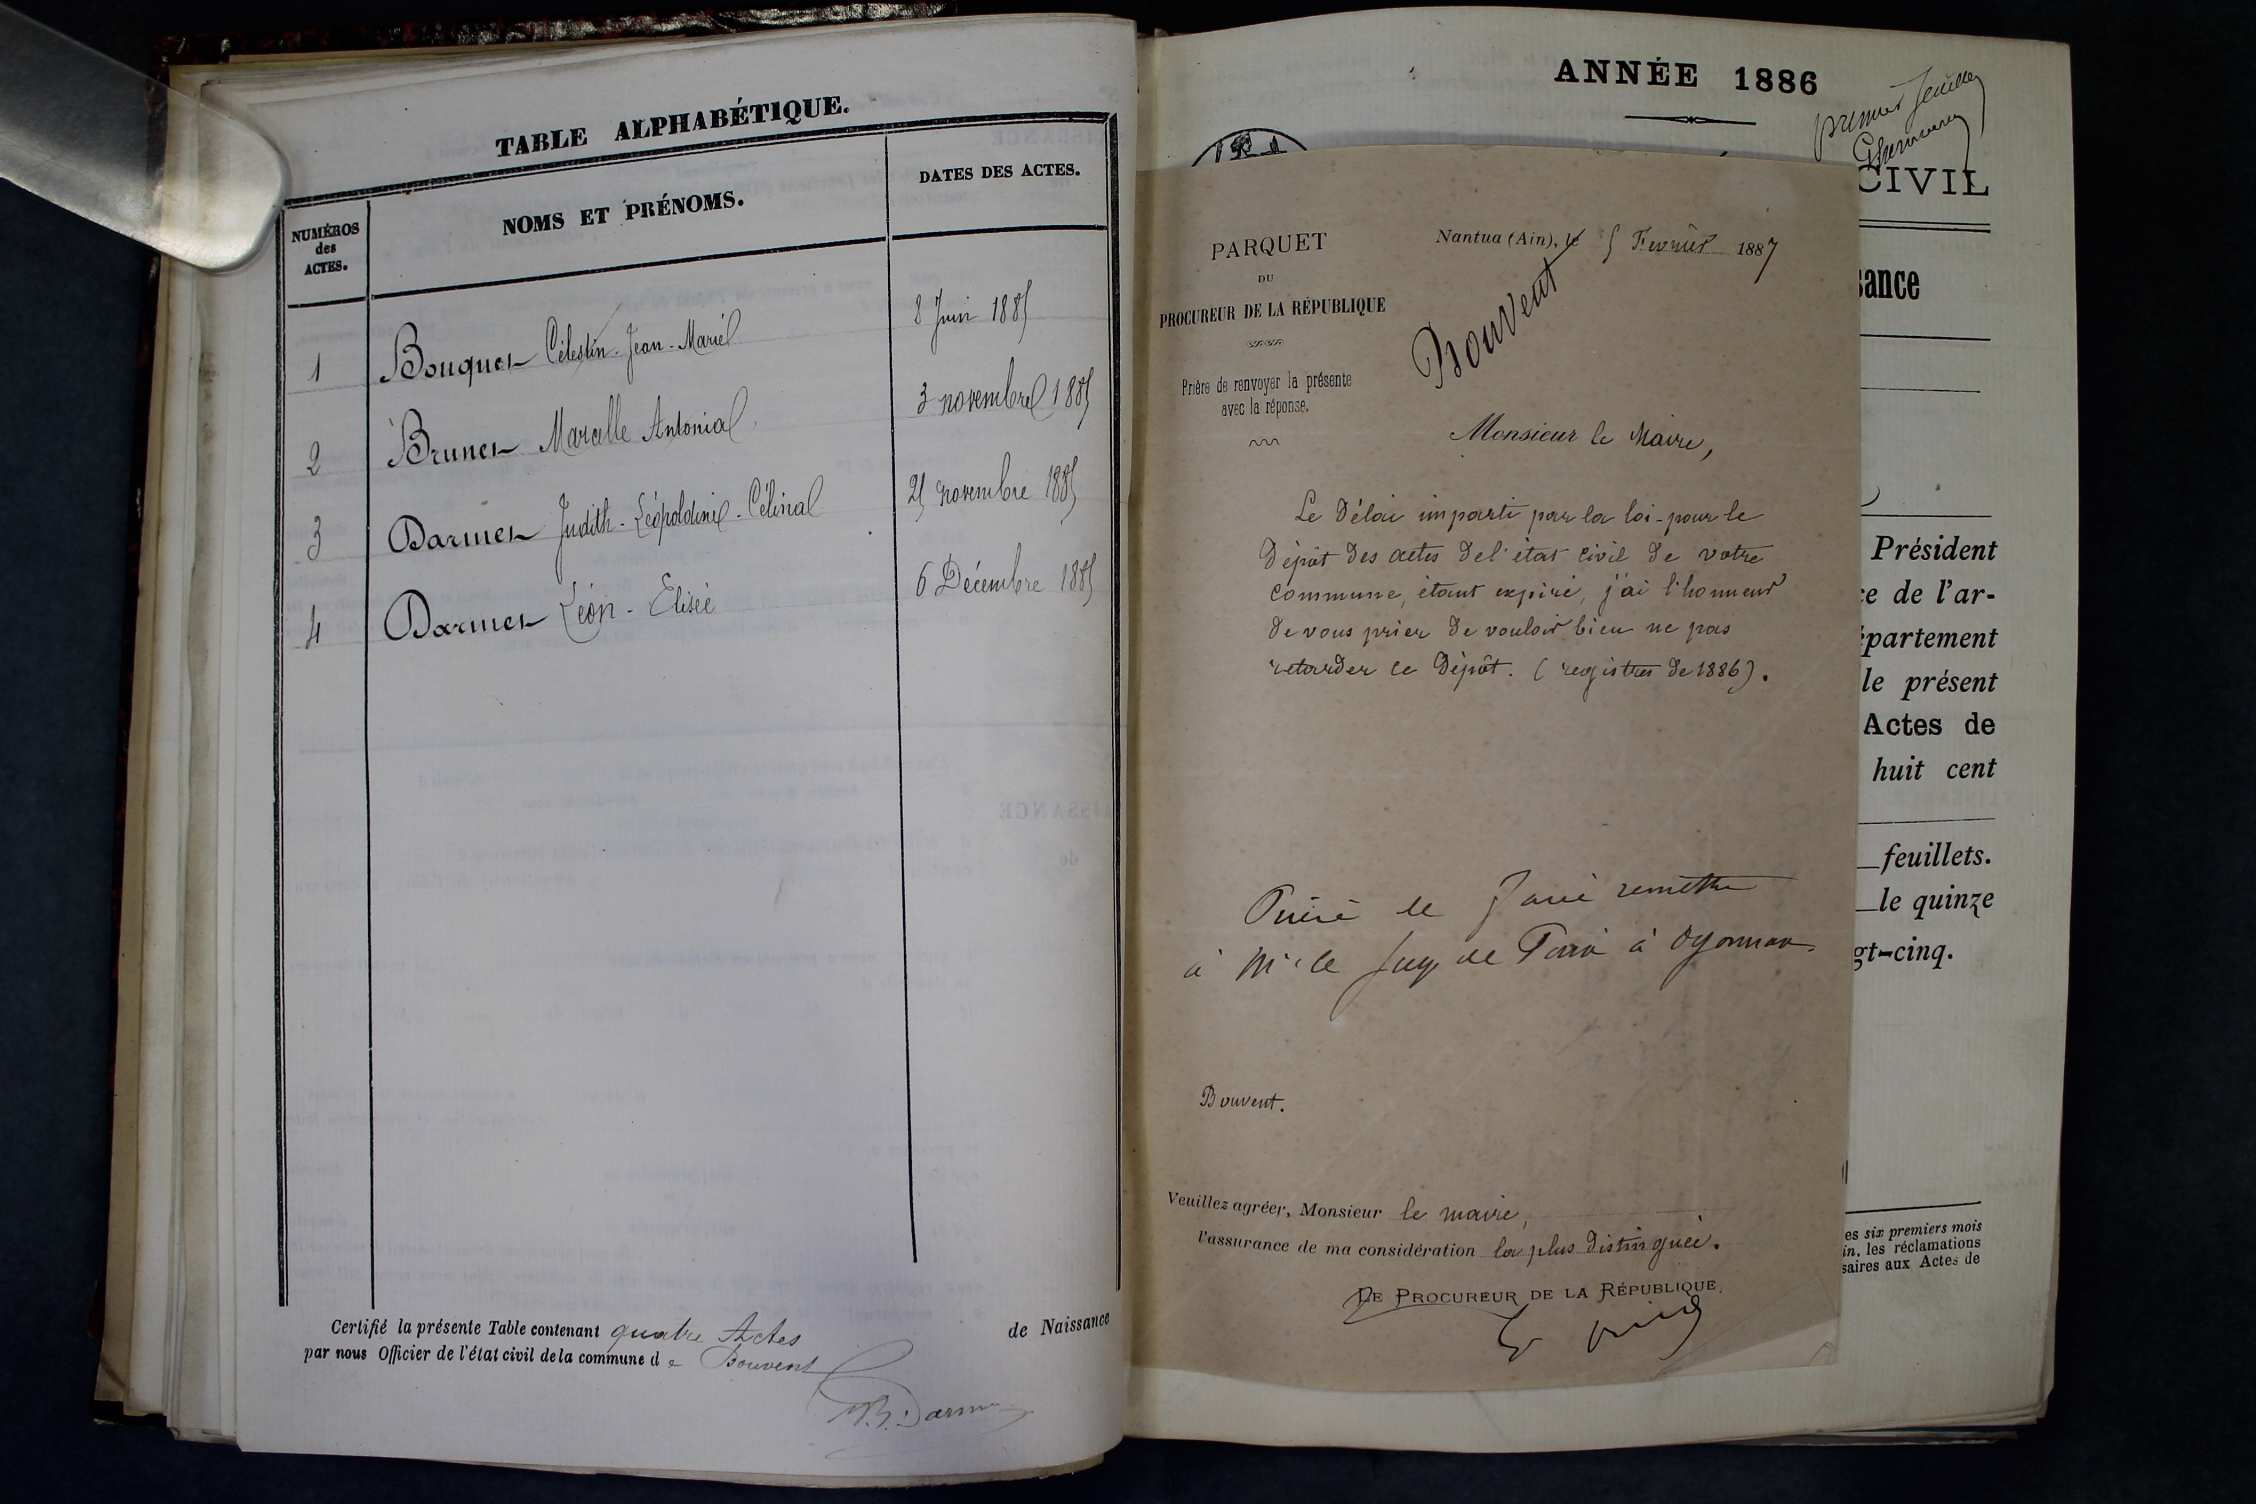 TABLE ALPHABÉTIQUE.
NUMÉROS
des
ACTES.
NOMS ET PRÉNOMS.
DATES DES ACTES.
1 Bouquet Célestin-Jean-Marie 8 Juin 1885
2 Brunet Marcelle Antonia 3 novembre 1885
3 Darmet Judith-Léopoldine-Célina 25 novembre 1885
4 Darmet Léon-Elisée 6 Décembre 1885
Certifié la présente Table contenant quatre Actes de Naissance
par nous Officier de l'état civil de la commune de Bouvent
ANNÉE 1886
premier feuillet
CIVIL
sance
Président
ce de l'ar-
épartement
le présent
Actes de
huit cent
feuillets.
le quinze
gt-cinq.
es six premiers mois
in, les réclamations
saires aux Actes de
PARQUET
DU
PROCUREUR DE LA RÉPUBLIQUE
Prière de renvoyer la présente
avec la réponse.
Nantua (Ain), le 5 Février 1887
Bouvent
Monsieur le Maire,
Le Délai imparti par la loi pour le
Dépôt des actes de l'état civil de votre
Commune, étant expiré, j'ai l'honneur
de vous prier de vouloir bien ne pas
retarder ce Dépôt. (registres de 1886).
Prière de faire remettre
à Mr le Juge de Paix à Oyonnax
Bouvent.
Veuillez agréer, Monsieur le maire,
l'assurance de ma considération la plus distinguée.
LE PROCUREUR DE LA RÉPUBLIQUE,